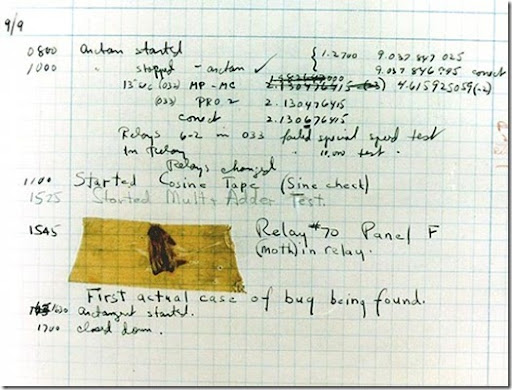 9/9
0800 antan started { 1.2700 9.037 847 025
1000 " stopped - antan ✓ 9.037 846 995 correct
13"uc (032) MP - MC 2.130476415 (-3) 4.615925059(-2)
(033) PRO 2 2.130476415
correct 2.130676415
Relays 6-2 in 033 failed special speed test
In Relay " 11.000 test .
Relays changed
1100 Started Cosine Tape (Sine check)
1525 Started Mult + Adder Test.
1545 Relay #70 Panel F
(moth) in relay.
First actual case of bug being found.
1630 antangent started.
1700 closed down .